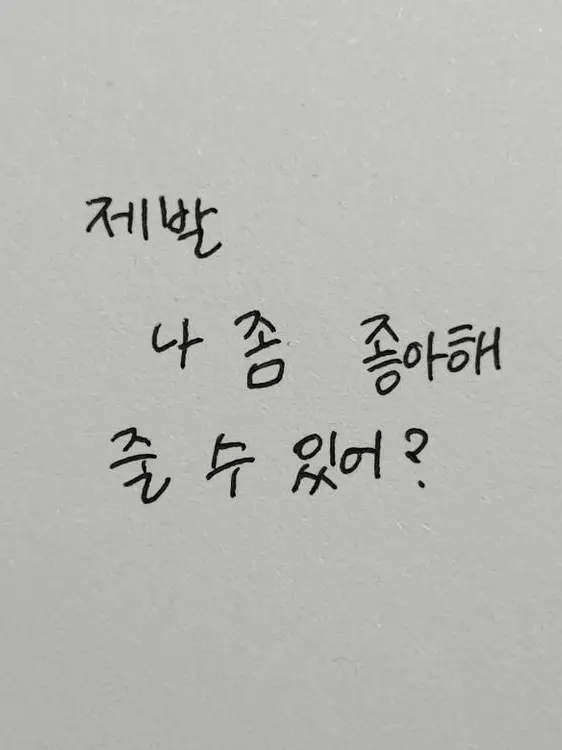 제발
나 좀 좋아해
줄 수 있어?